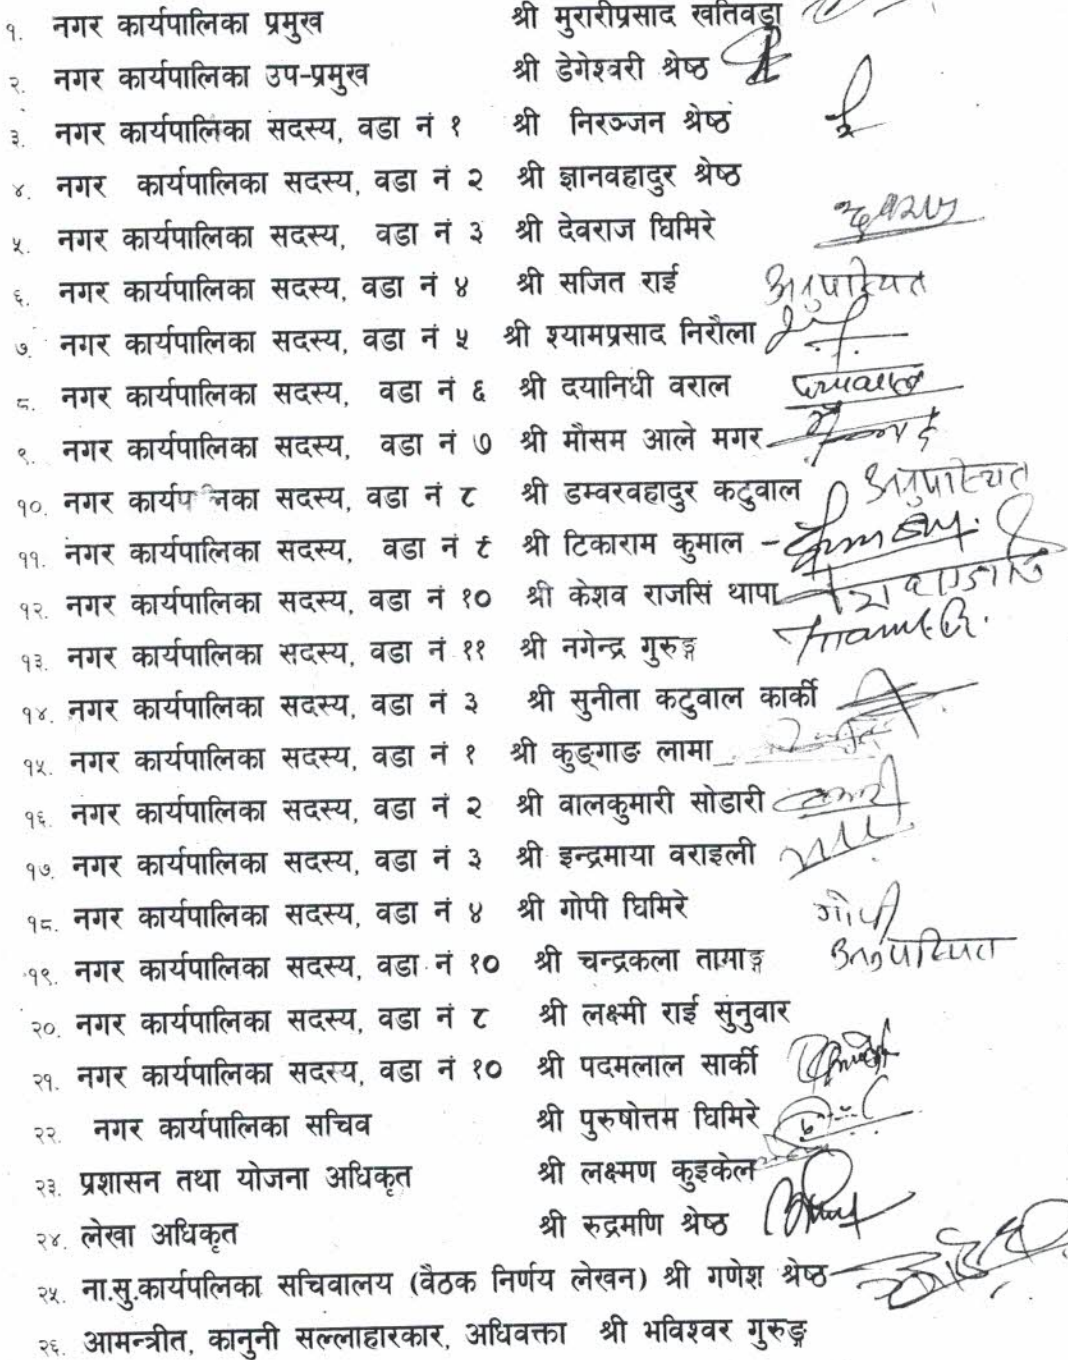 १. नगर कार्यपालिका प्रमुख श्री मुरारीप्रसाद खतिवडा
२. नगर कार्यपालिका उप-प्रमुख श्री डेगेश्वरी श्रेष्ठ
३. नगर कार्यपालिका सदस्य, वडा नं १ श्री निरञ्जन श्रेष्ठ
४. नगर कार्यपालिका सदस्य, वडा नं २ श्री ज्ञानवहादुर श्रेष्ठ
५. नगर कार्यपालिका सदस्य, वडा नं ३ श्री देवराज घिमिरे देवराज
६. नगर कार्यपालिका सदस्य, वडा नं ४ श्री सजित राई अनुपस्थित
७. नगर कार्यपालिका सदस्य, वडा नं ५ श्री श्यामप्रसाद निरौला
८. नगर कार्यपालिका सदस्य, वडा नं ६ श्री दयानिधी वराल
९. नगर कार्यपालिका सदस्य, वडा नं ७ श्री मौसम आले मगर
१०. नगर कार्यपालिका सदस्य, वडा नं ८ श्री डम्वरवहादुर कटुवाल अनुपस्थित
११. नगर कार्यपालिका सदस्य, वडा नं ९ श्री टिकाराम कुमाल -
१२. नगर कार्यपालिका सदस्य, वडा नं १० श्री केशव राजसिं थापा
१३. नगर कार्यपालिका सदस्य, वडा नं ११ श्री नगेन्द्र गुरुङ्ग
१४. नगर कार्यपालिका सदस्य, वडा नं ३ श्री सुनीता कटुवाल कार्की
१५. नगर कार्यपालिका सदस्य, वडा नं १ श्री कुङ्गाङ लामा
१६. नगर कार्यपालिका सदस्य, वडा नं २ श्री वालकुमारी सोडारी
१७. नगर कार्यपालिका सदस्य, वडा नं ३ श्री इन्द्रमाया वराइली
१८. नगर कार्यपालिका सदस्य, वडा नं ४ श्री गोपी घिमिरे गोपी
१९. नगर कार्यपालिका सदस्य, वडा नं १० श्री चन्द्रकला तामाङ्ग अनुपस्थित
२०. नगर कार्यपालिका सदस्य, वडा नं ८ श्री लक्ष्मी राई सुनुवार
२१. नगर कार्यपालिका सदस्य, वडा नं १० श्री पदमलाल सार्की
२२. नगर कार्यपालिका सचिव श्री पुरुषोत्तम घिमिरे
२३. प्रशासन तथा योजना अधिकृत श्री लक्ष्मण कुइकेल
२४. लेखा अधिकृत श्री रुद्रमणि श्रेष्ठ
२५. ना.सु.कार्यपालिका सचिवालय (वैठक निर्णय लेखन) श्री गणेश श्रेष्ठ
२६. आमन्त्रीत, कानुनी सल्लाहारकार, अधिवक्ता श्री भविश्वर गुरुङ्ग